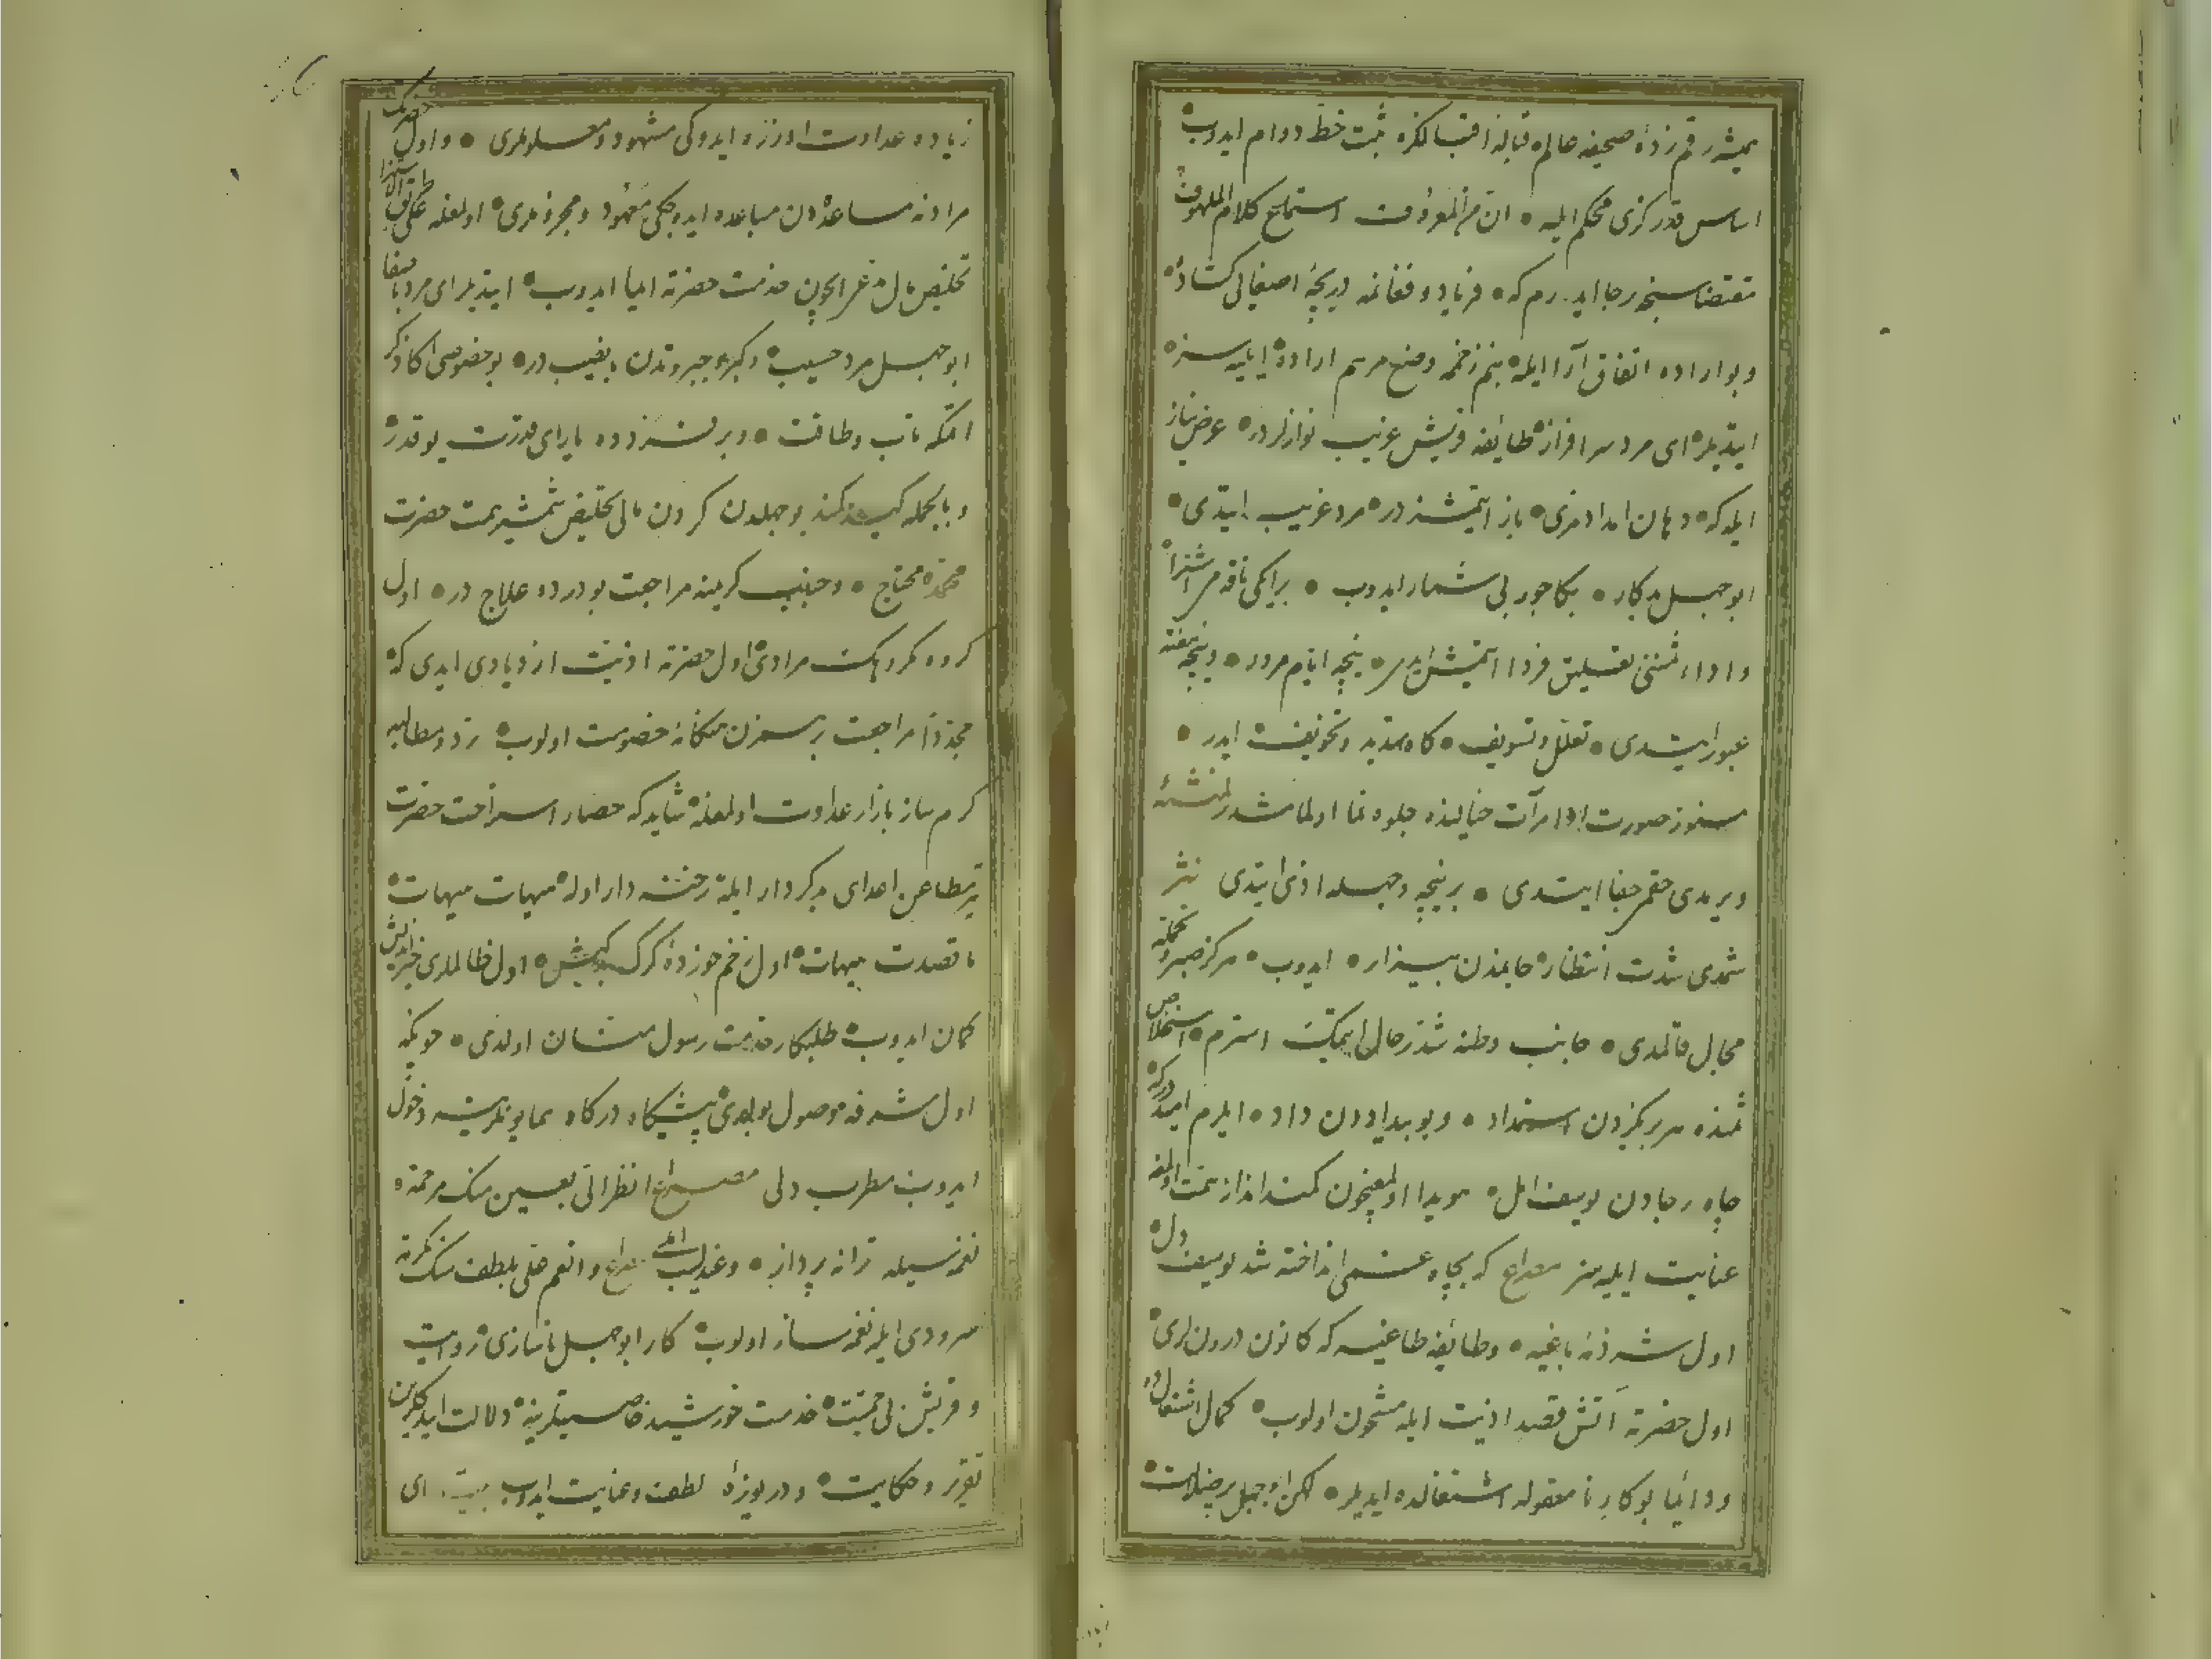 همیشه رقم زدهٔ صحیفه عالم و قباله اقبالکزه ثبت خط دوام ایدوب
اساس قدرکزی محکم ایلیه ان من المعروف استماع کلام الملهوف
مقتضاسنجه رجا ایدرم که فریاد و فغانمه دریچهٔ اصغایی کشاده
و بو اراده اتفاق آرا ایله بنم زخمه وضع مرهم اراده ایلیه سز
ایتدیلر ای مرد سرافراز طائفه قریش غریب نوازلردر عرض نیاز
ایله که دهان امدادمزی باز ایتمشزدر مرد غریب ایتدی
ابو جهل بدکار بکا جور بی شمار ایدوب بر ایکی ناقه مز اشترا
و اداء ثمنی تعلیق فردا ایتمش ایدی نیجه ایام مرور و نیجه هفته
عبور ایتدی تعلل و تسویف کاه تهدید و تخویف ایدر
هنوز صورت ادا مرآت خیالنده جلوه نما اولمامشدر
ویرمدی حقم جفا ایتدی بر نیجه وجهله اذی ایتدی نثر
شمدی شدت انتظار جانمدن بیزار ایدوب مرکز صبر و تحمله
مجال قالمدی جانب وطنه شد رحال ایتمک استرم استخلاص
ثمنده هر بریکزدن استمداد و بو بیداددن داد ایلرم امیددر که
چاه رجادن یوسف امل هویدا اولمغیچون کمند انداز همت اولغه
عنایت ایلیه سز مصراع که بچاه غمی انداخته شد یوسف دل
اول شرذمهٔ باغیه و طائفه طاغیه که کانون درونلری
اول حضرته آتش قصد اذیت ایله مشحون اولوب کمال اشتعالده
و دائما بو کارنا معقوله اشتغالده ایدیلر لکن ابو جهل پر ضلالت
زیاده عداوت اوزره ایدوکی مشهود و معلوملری و اول حضرتک
مرادنه مساعده دن مباعده ایده جکی معهود و مجزوملری اولمغله علی طریق الاستهزا
تخلیص مال غرا یچون خدمت حضرته ایما ایدوب ایتدیلر ای مرد با صفا
ابو جهل مرد حسیب و کبر و جبروتدن با نصیب در بو خصوصی اکا ذکر
اتمکه تاب و طاقت و بر فردده یارای قدرت یوقدر
و بالجمله کمند بو جهلدن کردن مالی تخلیص شمشیر همت حضرت
محمده محتاج و جنیب کرمنه مراجعت بو درده علاج در اول
کروه مکروهک مرادی اول حضرته اذیت ازدیادی ایدی که
مراجعت خصومت اولوب رد و مطالبه
کرم ساز بازار عداوت اولمغله شاید که حصار استراحت حضرت
تیر مطاعن اعدای بدکردار ایله رخنه دار اوله هیهات هیهات
ما قصدت هیهات اول زخم خوردهٔ کرک اول ظالملری خیر اندیش
کمان ایدوب طلبکار خدمت رسول اولدی چونکه
اول شرفه موصول بولدی پیشکاه درکاه همایونلرینه دخول
ایدوب مطرب دلی مصراع انظر الی بعین منک مرحمة
نغمه سیله ترانه پرداز و عندلیب مصراع و انعم علی بلطف منک تکرمة
سرودی ایله نغمه ساز اولوب کار ابو جهل ناسازی روایت
و قریش بی حمیت خدمت خورشید خاصیتلرینه دلالت ایتدکلرین
تقریر و حکایت و دریوزهٔ لطف و عنایت ایدوب بیت ای